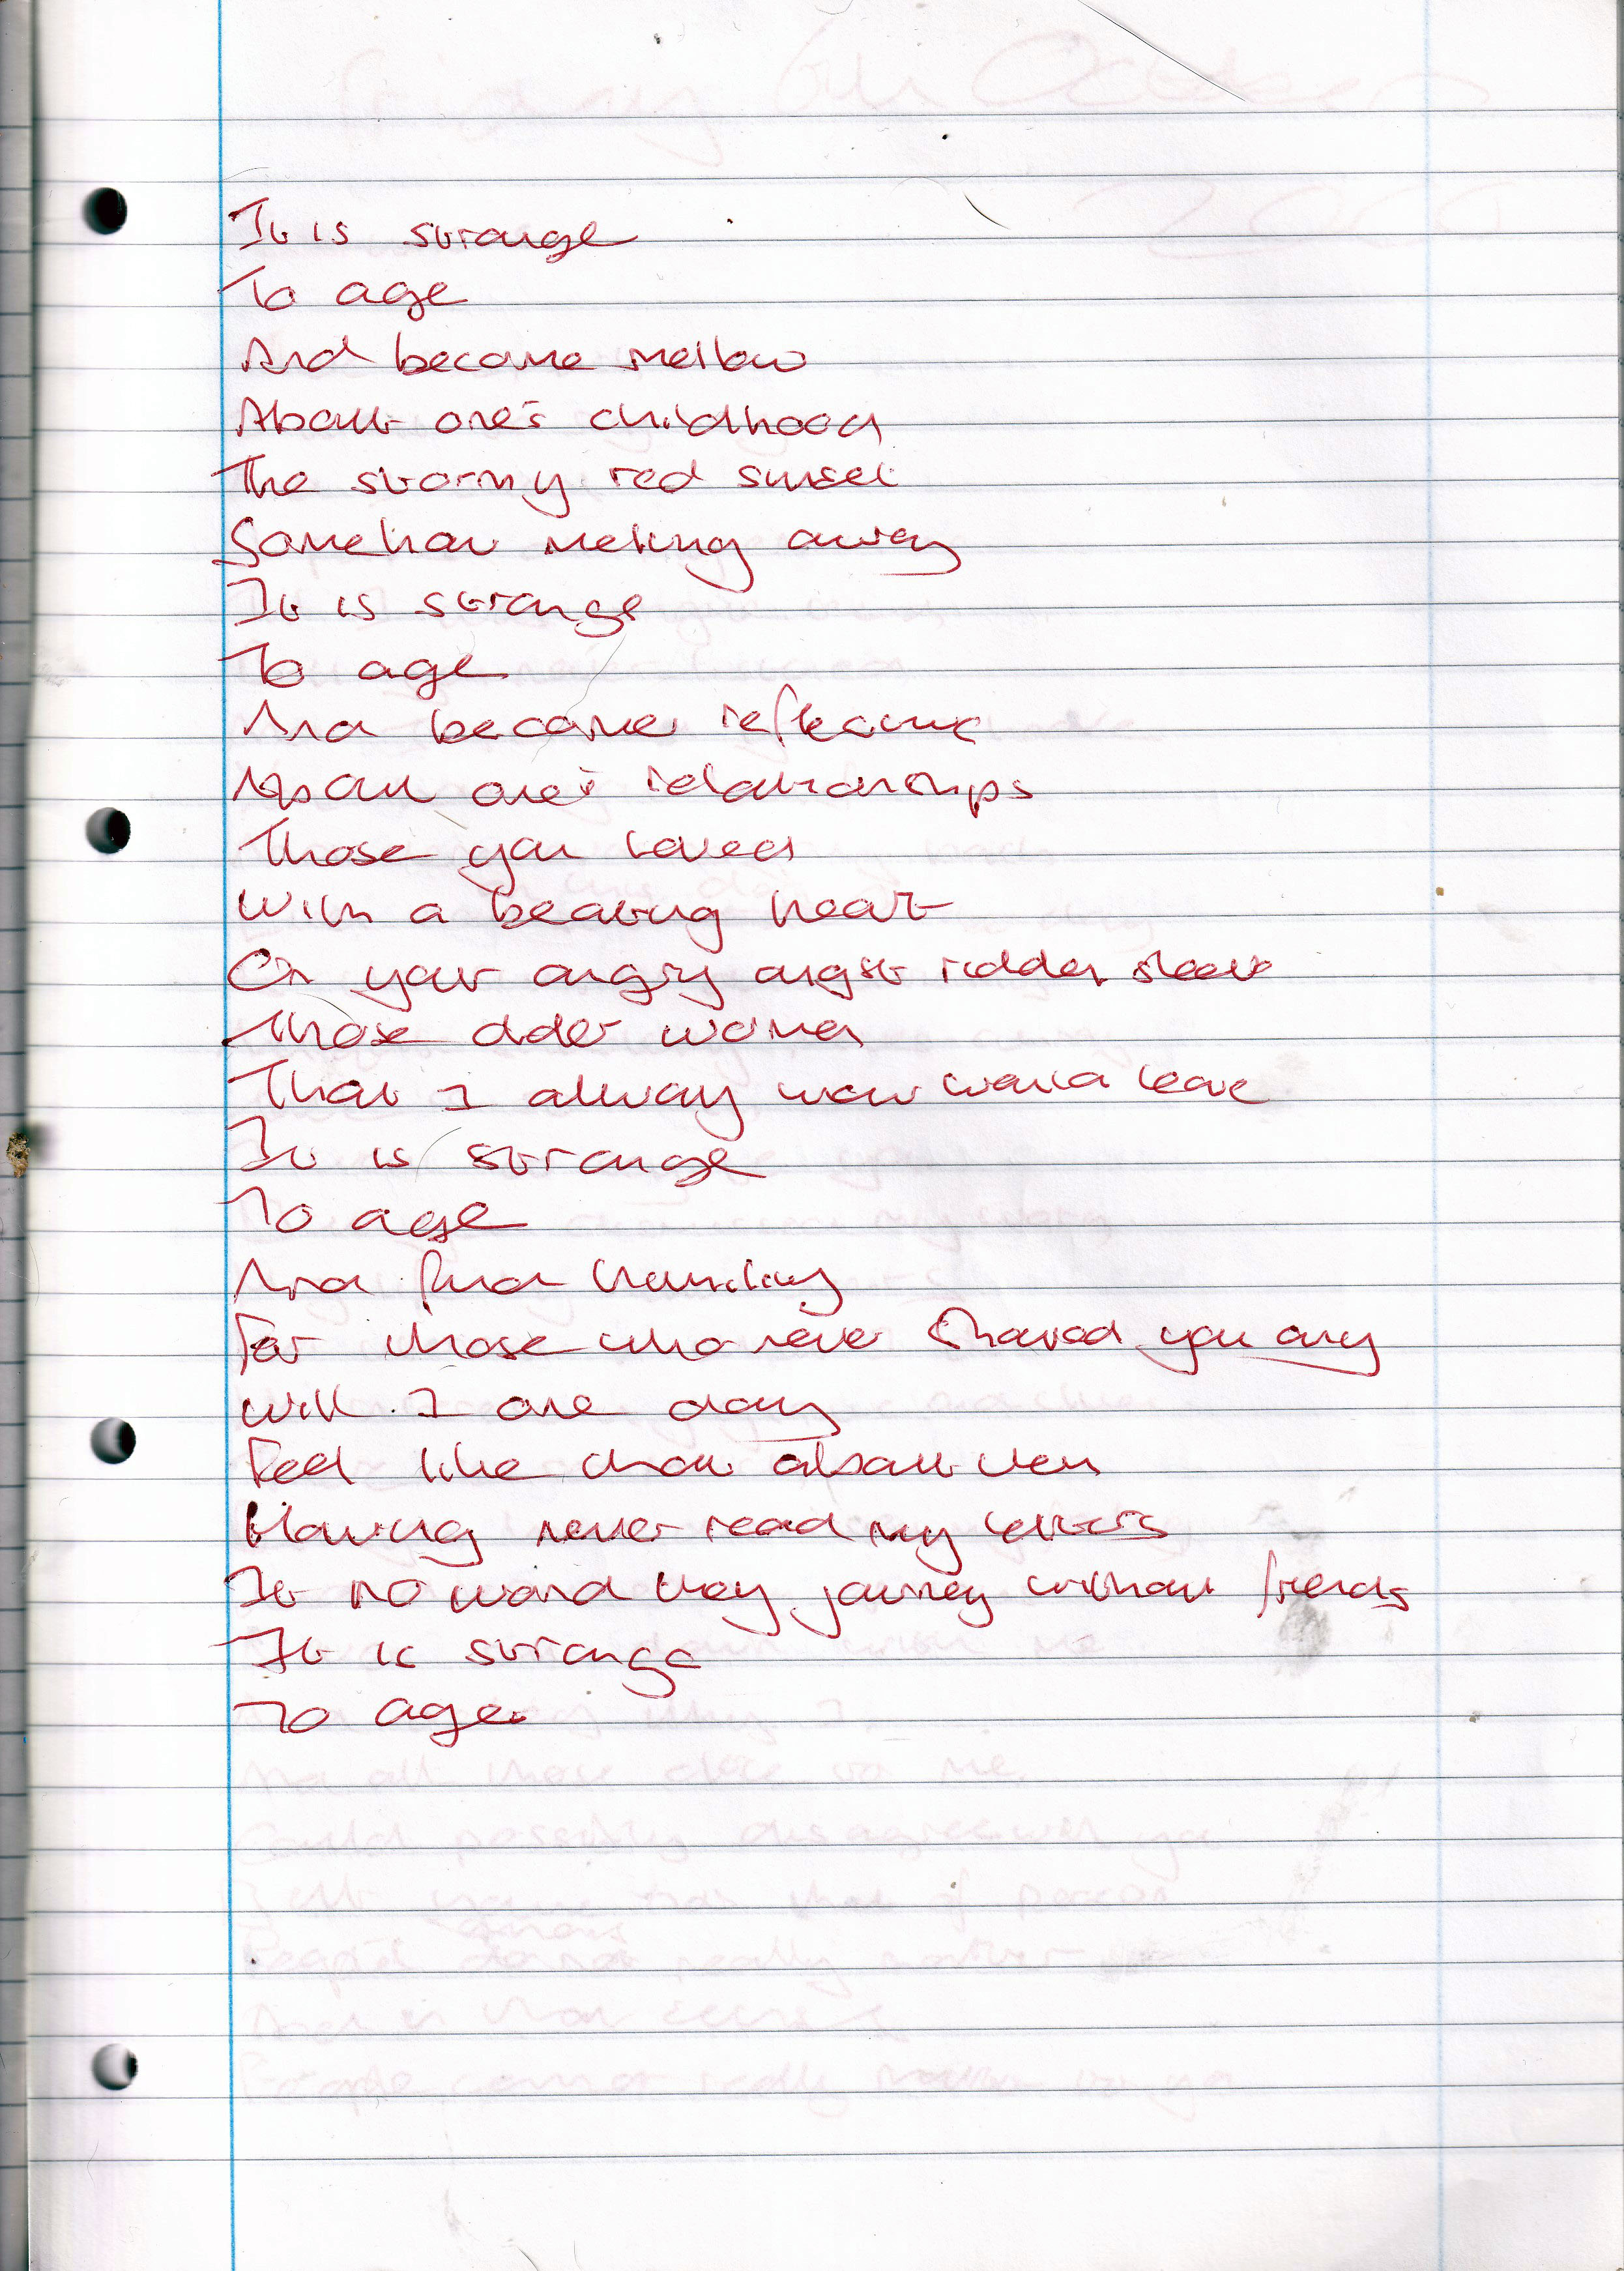 It is strange
To age
And become mellow
About one's childhood
The stormy red sunset
Somehow melting away
It is strange
To age
And become reflective
About one's relationships
Those you loved
With a beating heart
On your angry angst ridden sleeve
Those older women
That I always knew would leave
It is strange
To age
And find humility
For those who never showed you any
Will I one day
Feel like that about them
Having never read my letters
It no word they journey without friends
It is strange
To age.